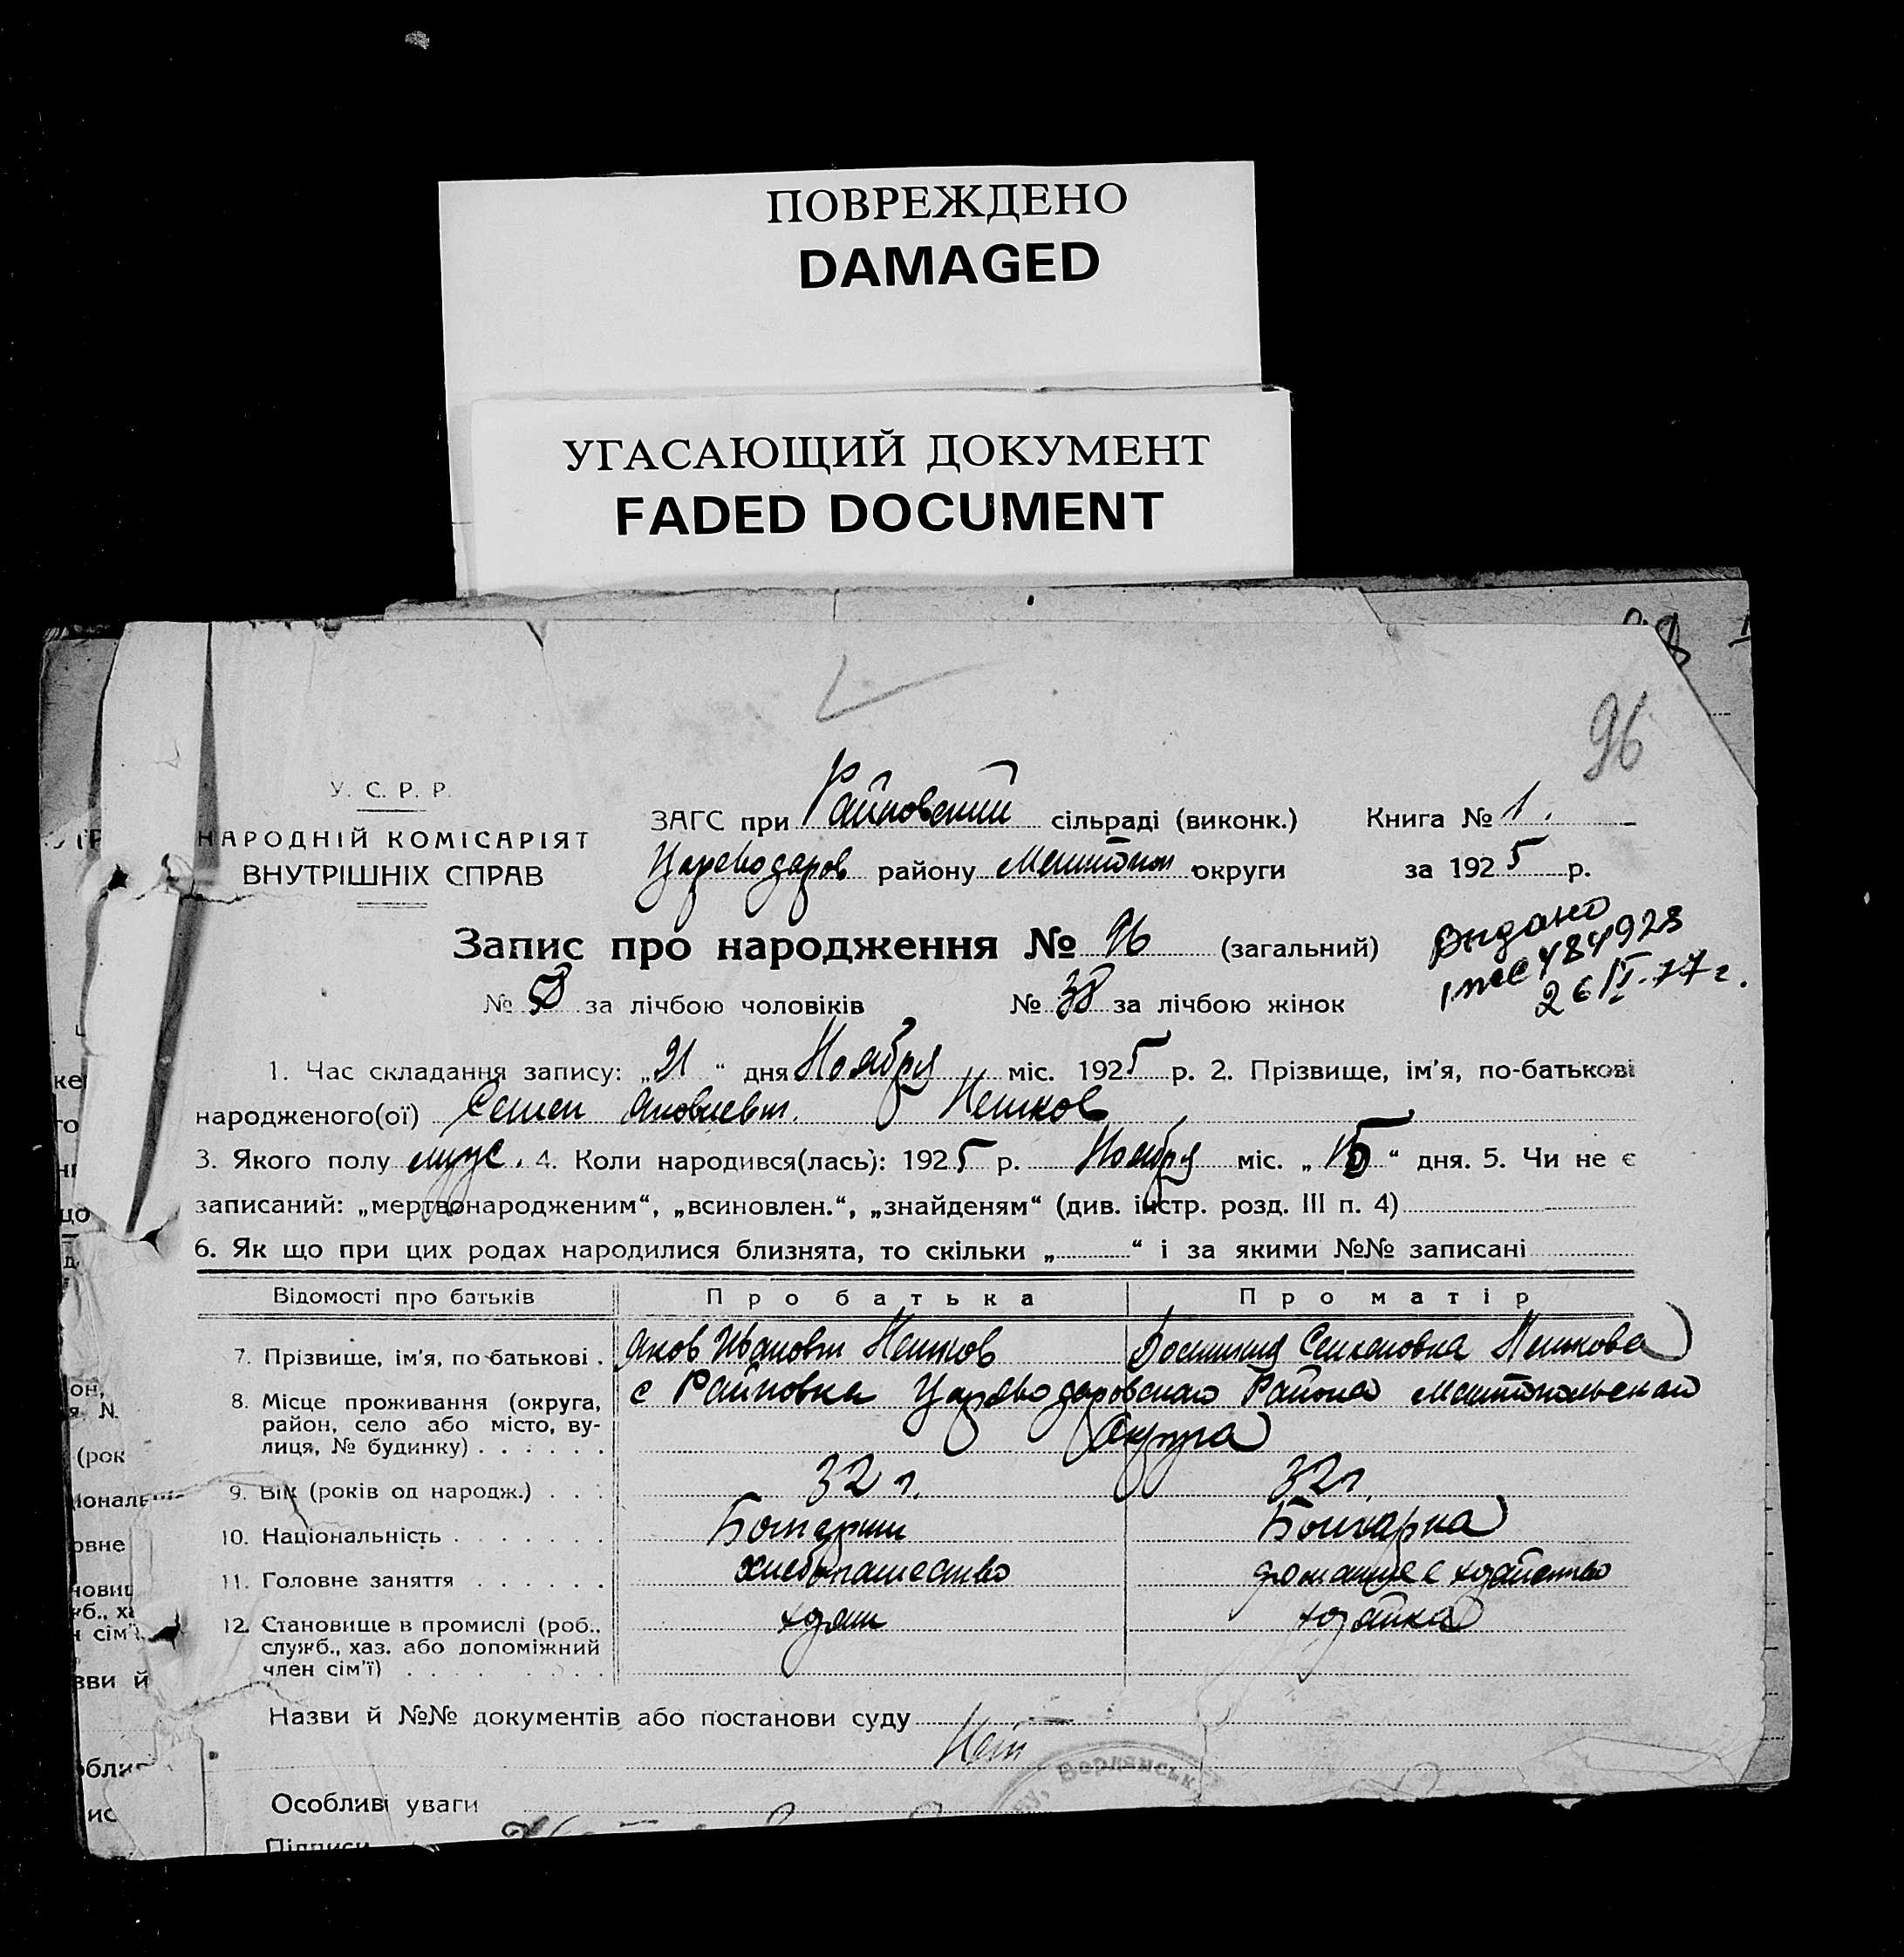 ПОВРЕЖДЕНО
DAMAGED
УГАСАЮЩИЙ ДОКУМЕНТ
FADED DOCUMENT
96
У. С. Р. Р.
НАРОДНІЙ КОМІСАРІЯТ
ВНУТРІШНІХ СПРАВ
ЗАГС при Райновский сільраді (виконк.) Книга № 1.
Цареводаров району Мелитопол округи за 1925 р.
Видано
484923
26 IV-77 г.
Запис про народження № 96 (загальний)
№ 58 за лічбою чоловіків № 38 за лічбою жінок
1. Час складання запису: „21“ дня Ноября міс. 1925 р. 2. Прізвище, ім'я, по-батькові
народженого(ої) Семен Яковлевич. Пешков
3. Якого полу муж. 4. Коли народився(лась): 1925 р. Ноября міс. „15“ дня. 5. Чи не є
записаний: „мертвонародженим“, „всиновлен.“, „знайденям“ (див. інстр. розд. III п. 4)
6. Як що при цих родах народилися близнята, то скільки „ “ і за якими №№ записані
Відомості про батьків Про батька Про матір
7. Прізвище, ім'я, по-батькові . Яков Иванович Пешков Семеновна Пешкова
8. Місце проживання (округа, с Райновка Цареводаровского Района Мелитопольского
район, село або місто, ву-
лиця, № будинку) . . . . . . Округа
9. Вік (років од народж.) . . . 32 г. 32 г.
10. Національність . . . . . . . Болгарин Болгарка
11. Головне заняття . . . . . . хлебопашество домашнее хозяйство
12. Становище в промислі (роб., хозяин хозяйка
служб., хаз. або допоміжний
член сім'ї) . . . . . . . .
Назви й №№ документів або постанови суду
Нет
Бердянськ
Особливі уваги
Підписи